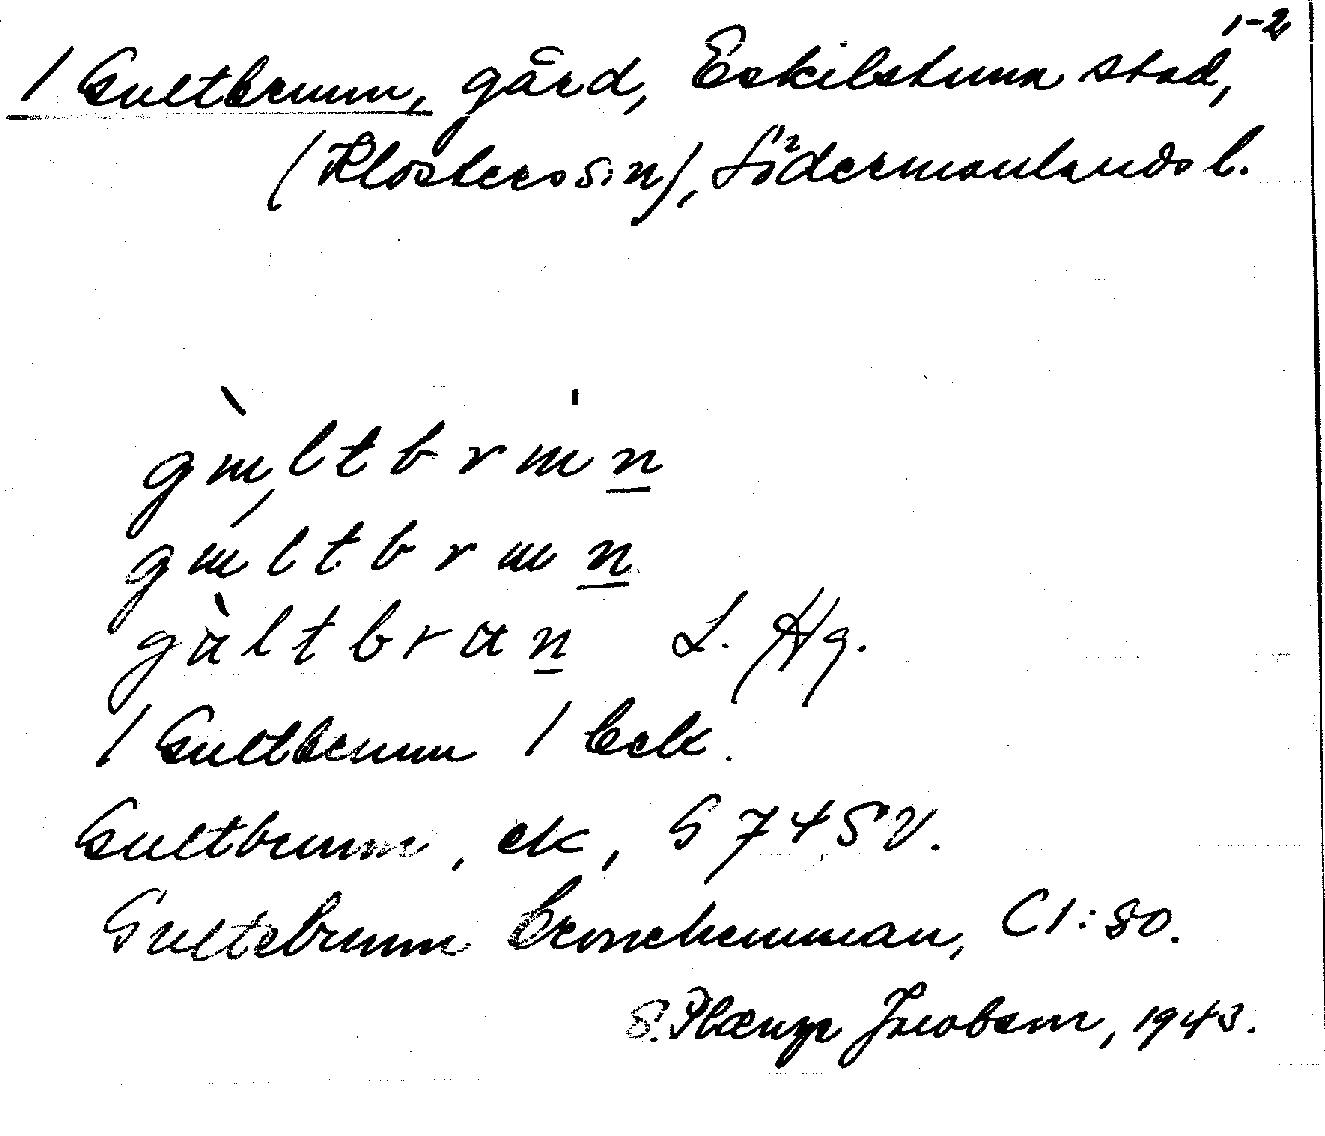 1-2
/ Gultbrunn, gård, Eskilstuna stad,
(Klosters sn), Södermanlands l.
gultbrun
gultbrun
gàltbran L. Hg.
/ Gultbrunn / Eek.
Gultbrunn, ek, G 745V.
Gultebrunn Cronehemman, C1:80.
S. Jacobsen, 1943.